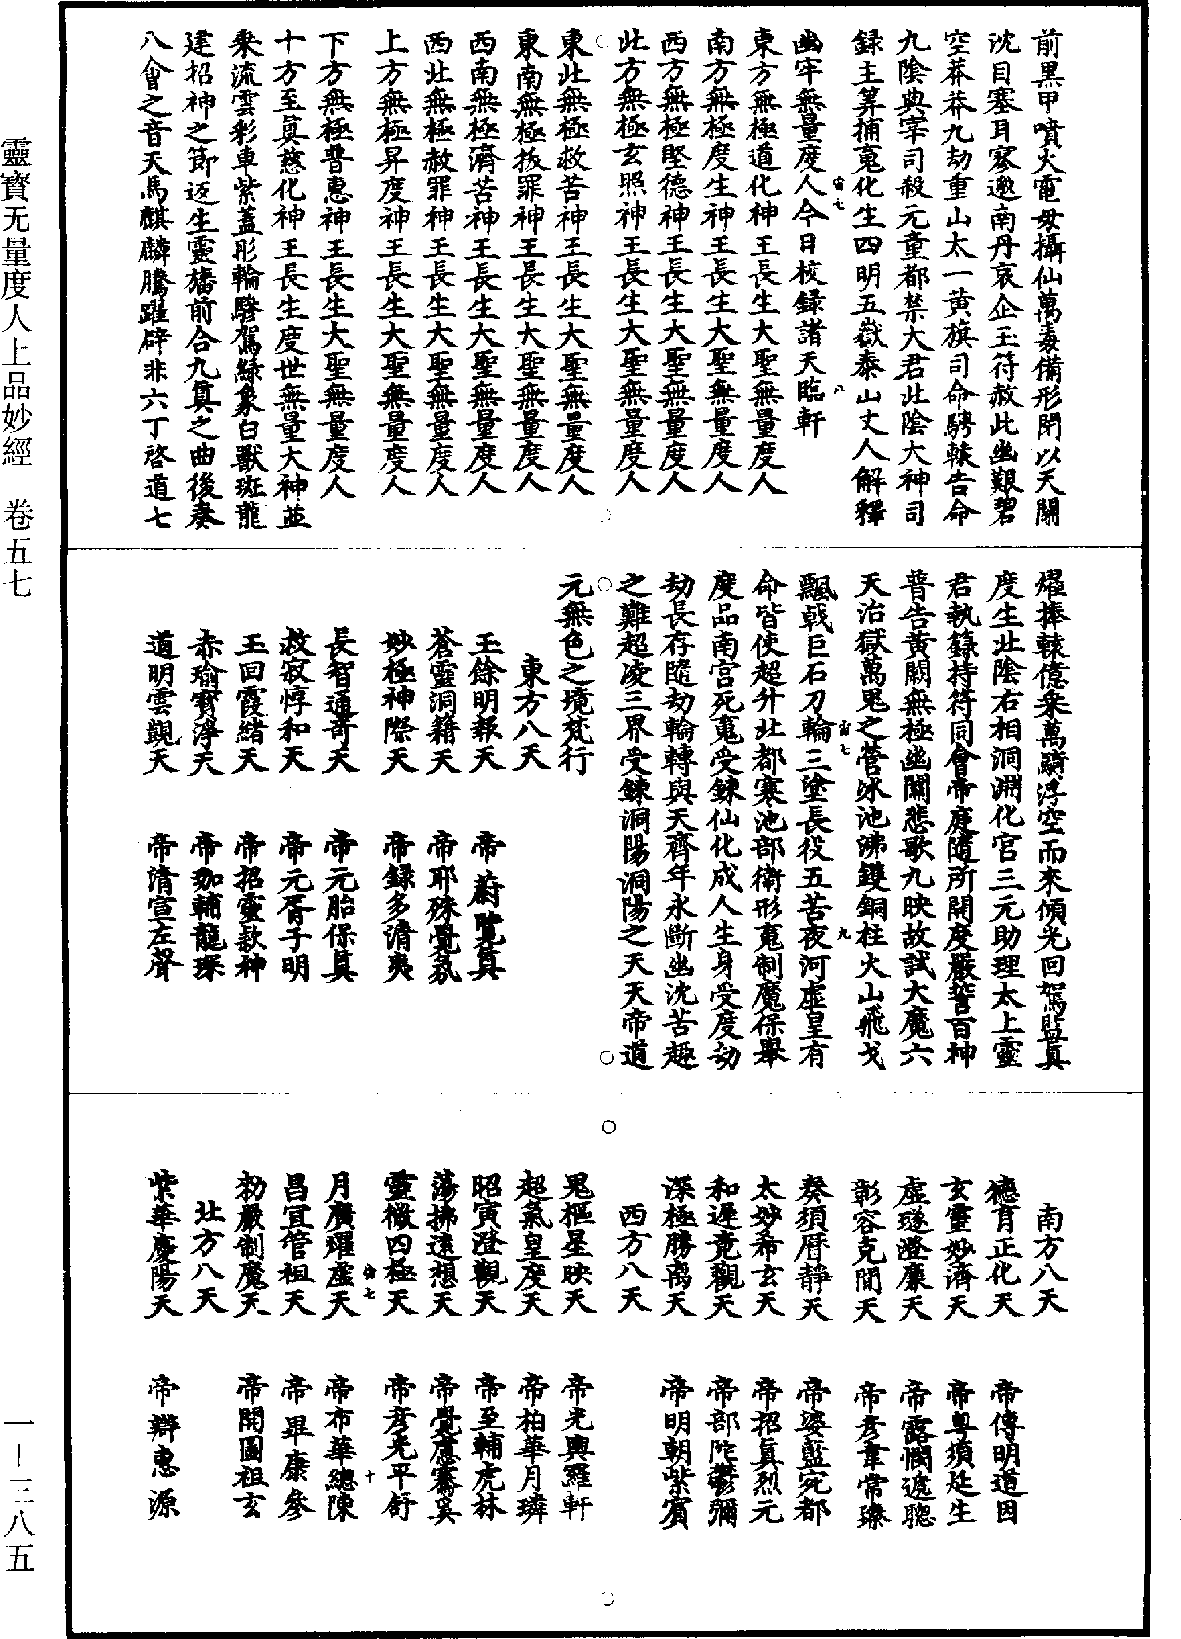 靈寳无量度人上品妙經 卷五七
一—三八五
前黑甲噴火電毋攝仙萬毒備形閉以天關
沈目塞耳寥邈南丹哀企玉符赦此幽艱碧
空莽莽九劫重山太一黄旗司命騁轅告命
九陰典宰司殺元童都禁大君北陰大神司
録主筭捕䰟化生四明五嶽泰山丈人解釋
幽牢無量度人今日校録諸天臨軒
東方無極道化神王長生大聖無量度人
南方無極度生神王長生大聖無量度人
西方無極堅德神王長生大聖無量度人
北方無極玄照神王長生大聖無量度人
東北無極救苦神王長生大聖無量度人
東南無極拔罪神王長生大聖無量度人
西南無極濟苦神王長生大聖無量度人
西北無極赦罪神王長生大聖無量度人
上方無極昇度神王長生大聖無量度人
下方無極普惠神王長生大聖無量度人
十方至真慈化神王長生度世無量大神並
乗流雲彩車紫蓋彤輪驂駕緑象白獸斑龍
建招神之節迈生靈旛前合九真之曲後奏
八會之音天馬麒麟騰躍辟非六丁啓道七
燿捧轅億乗萬騎浮空而來傾光回駕監真
度生北陰右相洞淵化官三元助理太上靈
君執籙持符同會帝庭隨所開度嚴誓百神
普告黄闕無極幽關悲歌九映故試大魔六
天治獄萬鬼之營冰池沸鑊銅柱火山飛戈
飄戟巨石刀輪三塗長役五苦夜河虛皇有
命皆使超升北都寒池部衛形䰟制魔保舉
度品南宫死䰟受鍊仙化成人生身受度劫
劫長存隨劫輪轉與天齊年永斷幽沈苦趣
之難超凌三界受鍊洞陽洞陽之天天帝道
元無色之境梵行
東方八天
玉餘明報天 帝蔚覽真
蒼靈洞籍天 帝耶殊覺氛
妙極神際天 帝録多清夷
長智通奇天 帝元胎保真
救寂惇和天 帝元胥子明
玉回霞緒天 帝招靈款神
赤瑜寳淨天 帝珈輔龍琛
道明雲觀天 帝清宣左聲
南方八天
德育正化天 帝傳明道因
玄靈妙濟天 帝粤須延生
虛璲澄麋天 帝露憪遮聦
彰容克閒天 帝彦韋常璪
葵須曆靜天 帝婆藍宛都
太妙希玄天 帝招真烈元
和遲竟觀天 帝部陁鬱彌
深極勝离天 帝明朝紫賔
西方八天
鬼樞星映天 帝光輿羅軒
超氣皇度天 帝柏華月璘
昭寅澄觀天 帝至輔虎林
蕩拂遠想天 帝覺應騫奚
靈微四極天 帝彦光平舒
月廣耀虛天 帝布華總陳
昌宜管祖天 帝畢康參
勑嚴制魔天 帝開圖祖玄
北方八天
紫華慶陽天 帝辯惠源